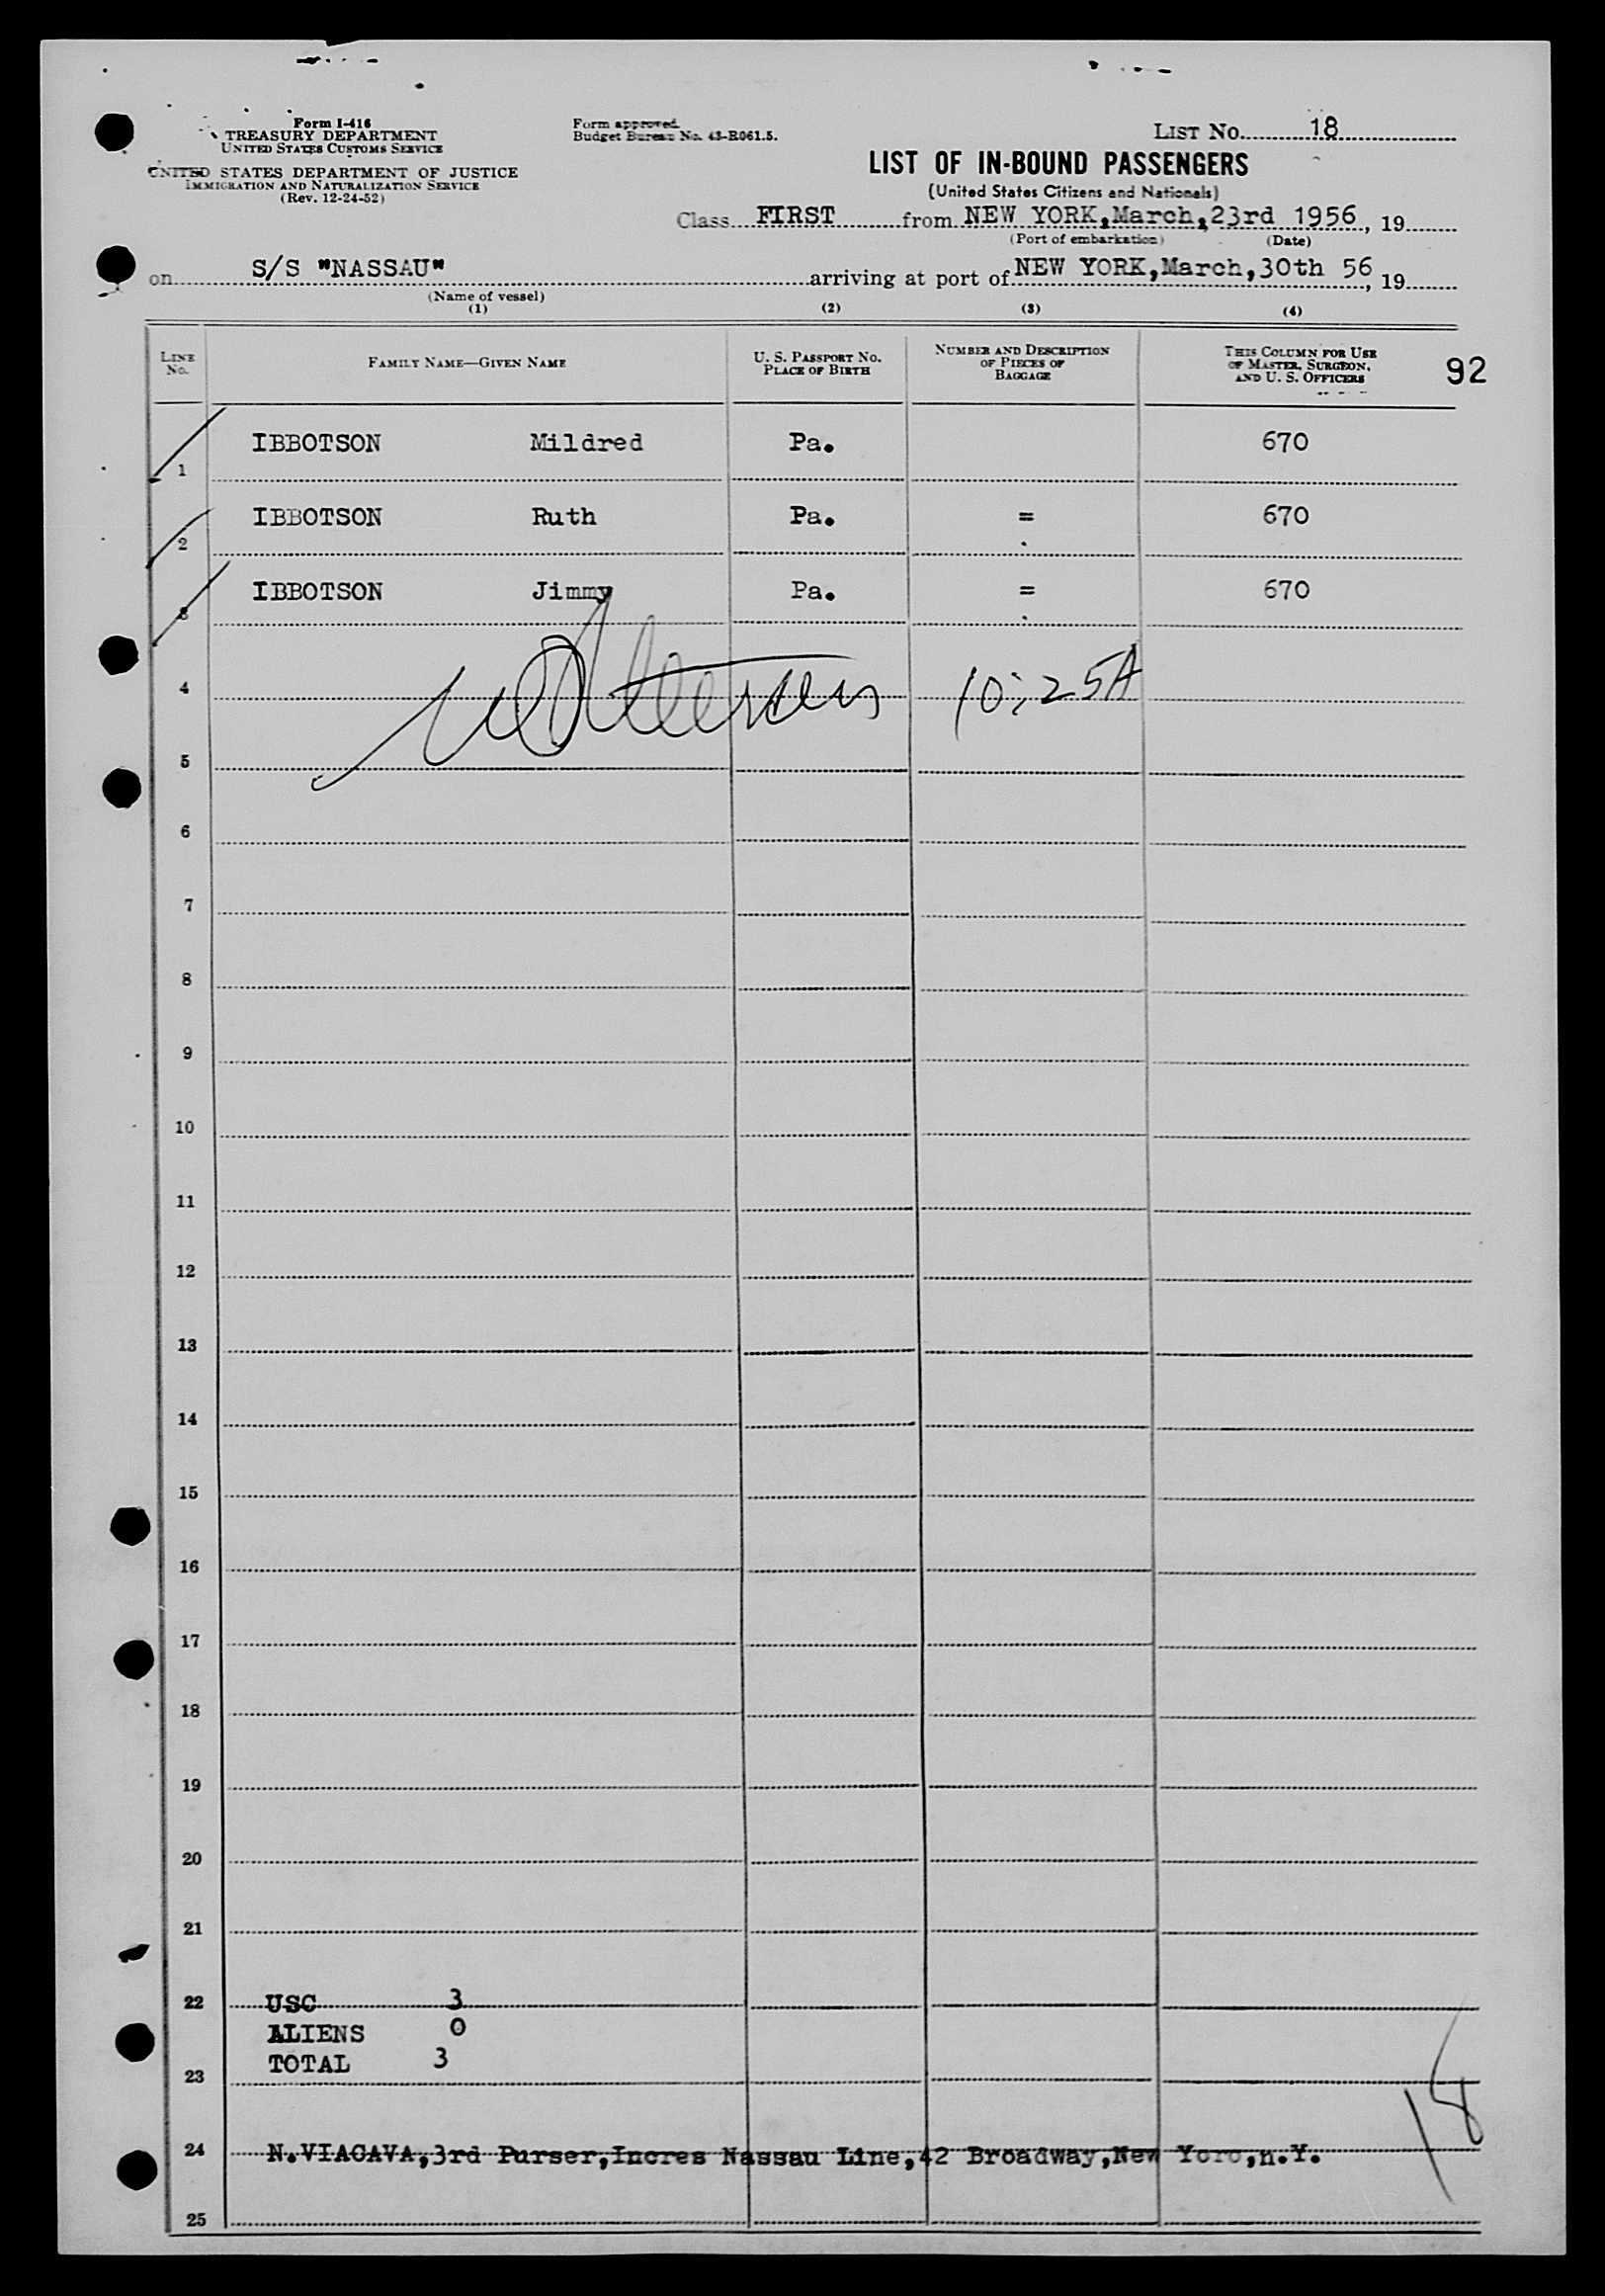 Form I-416
TREASURY DEPARTMENT
UNITED STATES CUSTOMS SERVICE
UNITED STATES DEPARTMENT OF JUSTICE
IMMIGRATION AND NATURALIZATION SERVICE
(Rev. 12-24-52)
Form approved.
Budget Bureau No. 43-R061.5.
LIST NO. 18
LIST OF IN-BOUND PASSENGERS
(United States Citizens and Nationals)
Class FIRST from NEW YORK, March, 23rd 1956, 19
(Port of embarkation) (Date)
on S/S "NASSAU" arriving at port of NEW YORK, March, 30th 56, 19
(Name of vessel)
(1) (2) (3) (4)
LINE NO. FAMILY NAME—GIVEN NAME U. S. PASSPORT NO. PLACE OF BIRTH NUMBER AND DESCRIPTION OF PIECES OF BAGGAGE THIS COLUMN FOR USE OF MASTER, SURGEON, AND U. S. OFFICERS 92
1 IBBOTSON Mildred Pa. 670
2 IBBOTSON Ruth Pa. = 670
3 IBBOTSON Jimmy Pa. = 670
4 10:25A
5
6
7
8
9
10
11
12
13
14
15
16
17
18
19
20
21
22 USC 3
ALIENS 0
TOTAL 3
23
24 N.VIACAVA,3rd Purser,Incres Nassau Line,42 Broadway,New Yorc,n.Y.
25
18